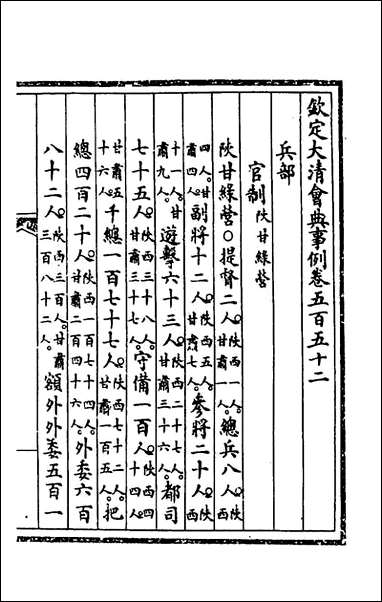 欽定大清會典事例卷五百五十二
兵部
官制陝甘綠營
陝甘綠營〇提督二人。陝西一人。甘肅一人。總兵八人。陝西
四人。甘肅四人。副將十二人。陝西五人。甘肅七人。參將二十人。陝西
十一人。甘肅九人。遊擊六十三人。陝西二十七人。甘肅三十六人。都司
七十五人。陝西三十八人。甘肅三十七人。守備一百人。陝西四十四人
甘肅五十六人。千總一百七十七人。陝西七十二人。甘肅一百五人。把
總四百二十人。陝西一百七十四人。甘肅二百四十六人。外委六百
八十二人。陝西三百人。甘肅三百八十二人。額外外委五百一